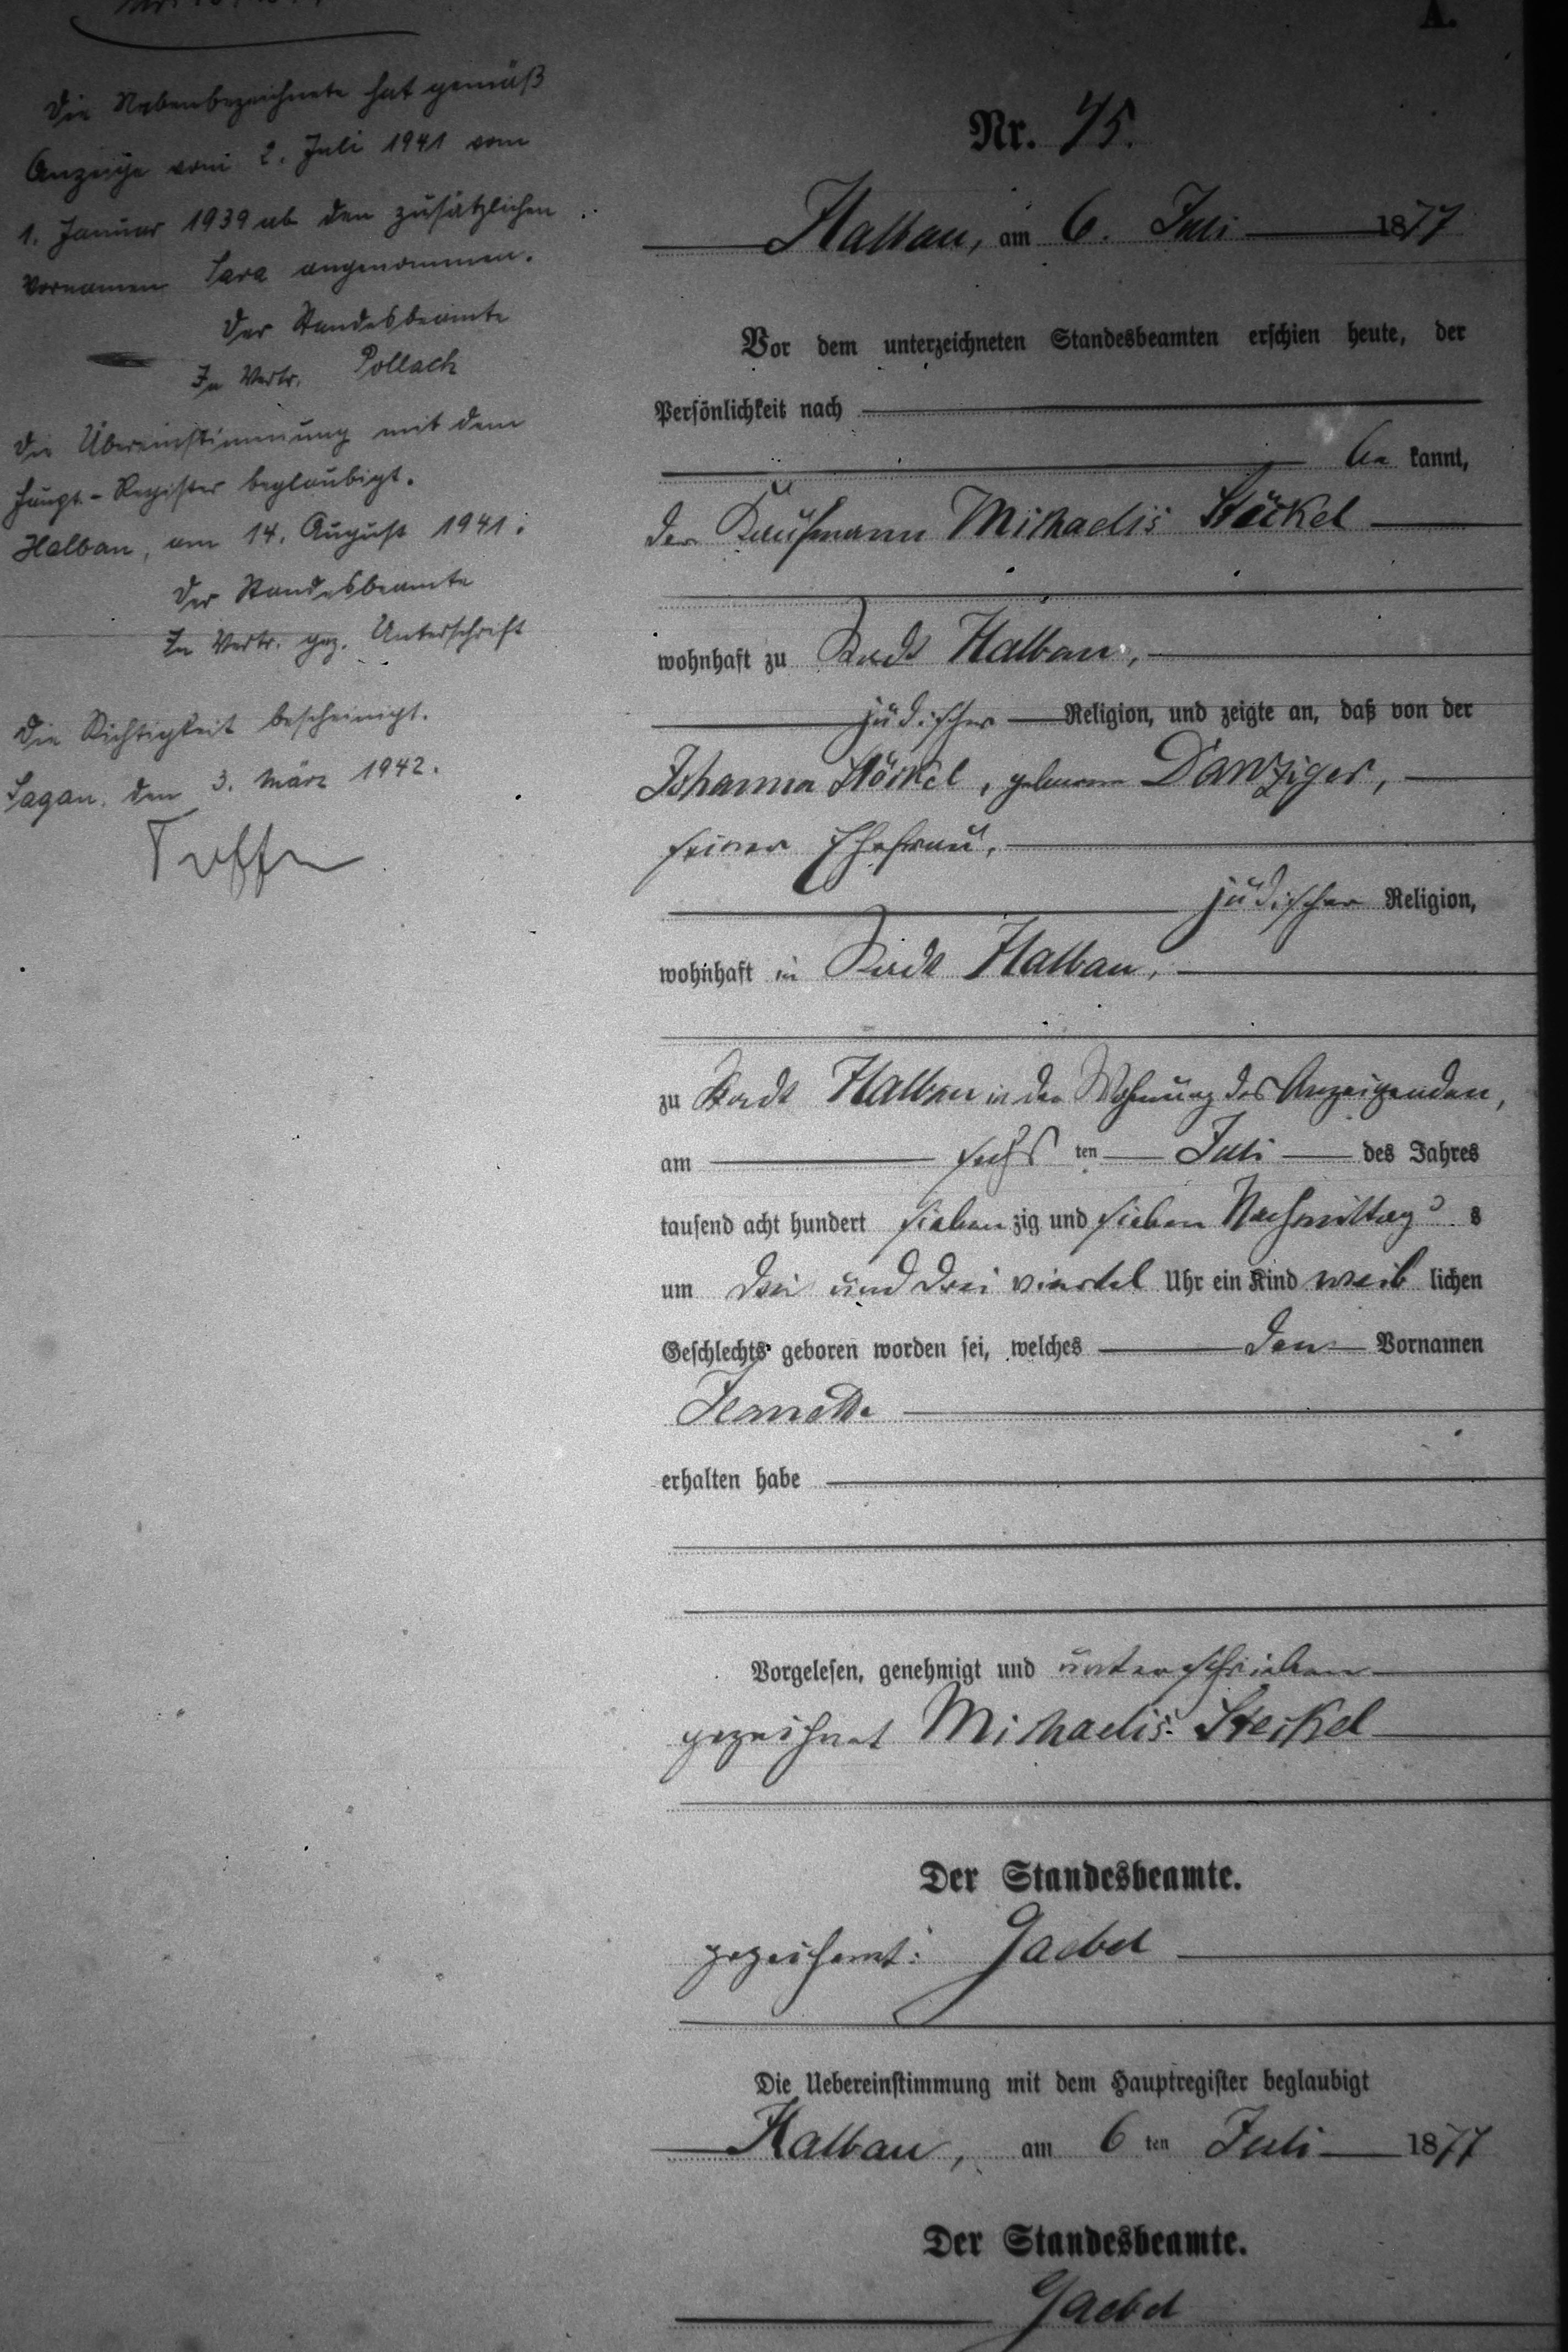 Die Nebenbezeichnete hat gemäß
Anzeige vom 2. Juli 1941 vom
1. Januar 1939 ab den zusätzlichen
Vornamen Sara angenommen.
Der Standesbeamte
In Vertr. Pollach
Die Übereinstimmung mit dem
Haupt-Register beglaubigt.
Halbau, am 14. August 1941.
Der Standesbeamte
In Vertr. gez. Unterschrift
Die Richtigkeit bescheinigt.
Sagan, den 3. März 1942.
A.
Nr. 75.
Halbau, am 6. Juli 1877
Vor dem unterzeichneten Standesbeamten erschien heute, der
Persönlichkeit nach
be kannt,
der Kaufmann Michaelis Stöckel
wohnhaft zu Stadt Halbau,
jüdischer Religion, und zeigte an, daß von der
Johanna Stöckel, geborene Danziger,
seiner Ehefrau,
jüdischer Religion,
wohnhaft in Stadt Halbau,
zu Stadt Halbau in der Wohnung des Anzeigenden,
am sechs ten Juli des Jahres
tausend acht hundert sieben zig und sieben Nachmittag s
um drei und drei viertel Uhr ein Kind weib lichen
Geschlechts geboren worden sei, welches den Vornamen
Jeanette
erhalten habe
Vorgelesen, genehmigt und unterschrieben
gezeichnet Michaelis Steckel
Der Standesbeamte.
gezeichnet: Gaebel
Die Uebereinstimmung mit dem Hauptregister beglaubigt
Halbau, am 6 ten Juli 1877
Der Standesbeamte.
Gaebel